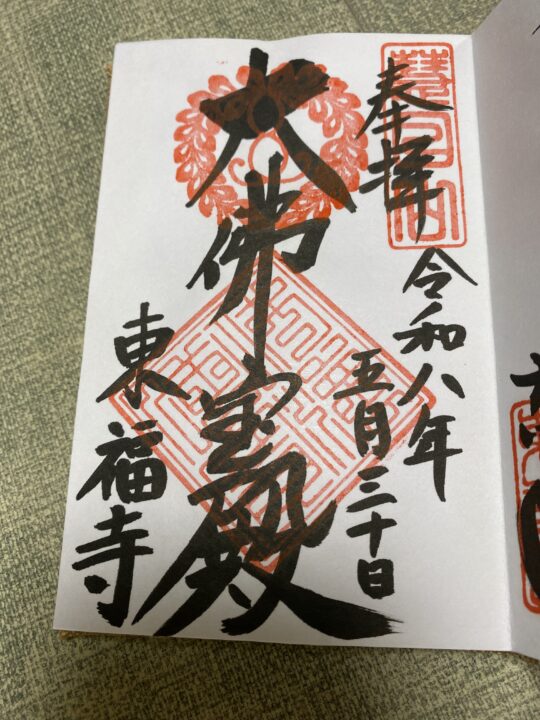 奉拝
令和八年
五月三十日
大佛宝殿
東福寺